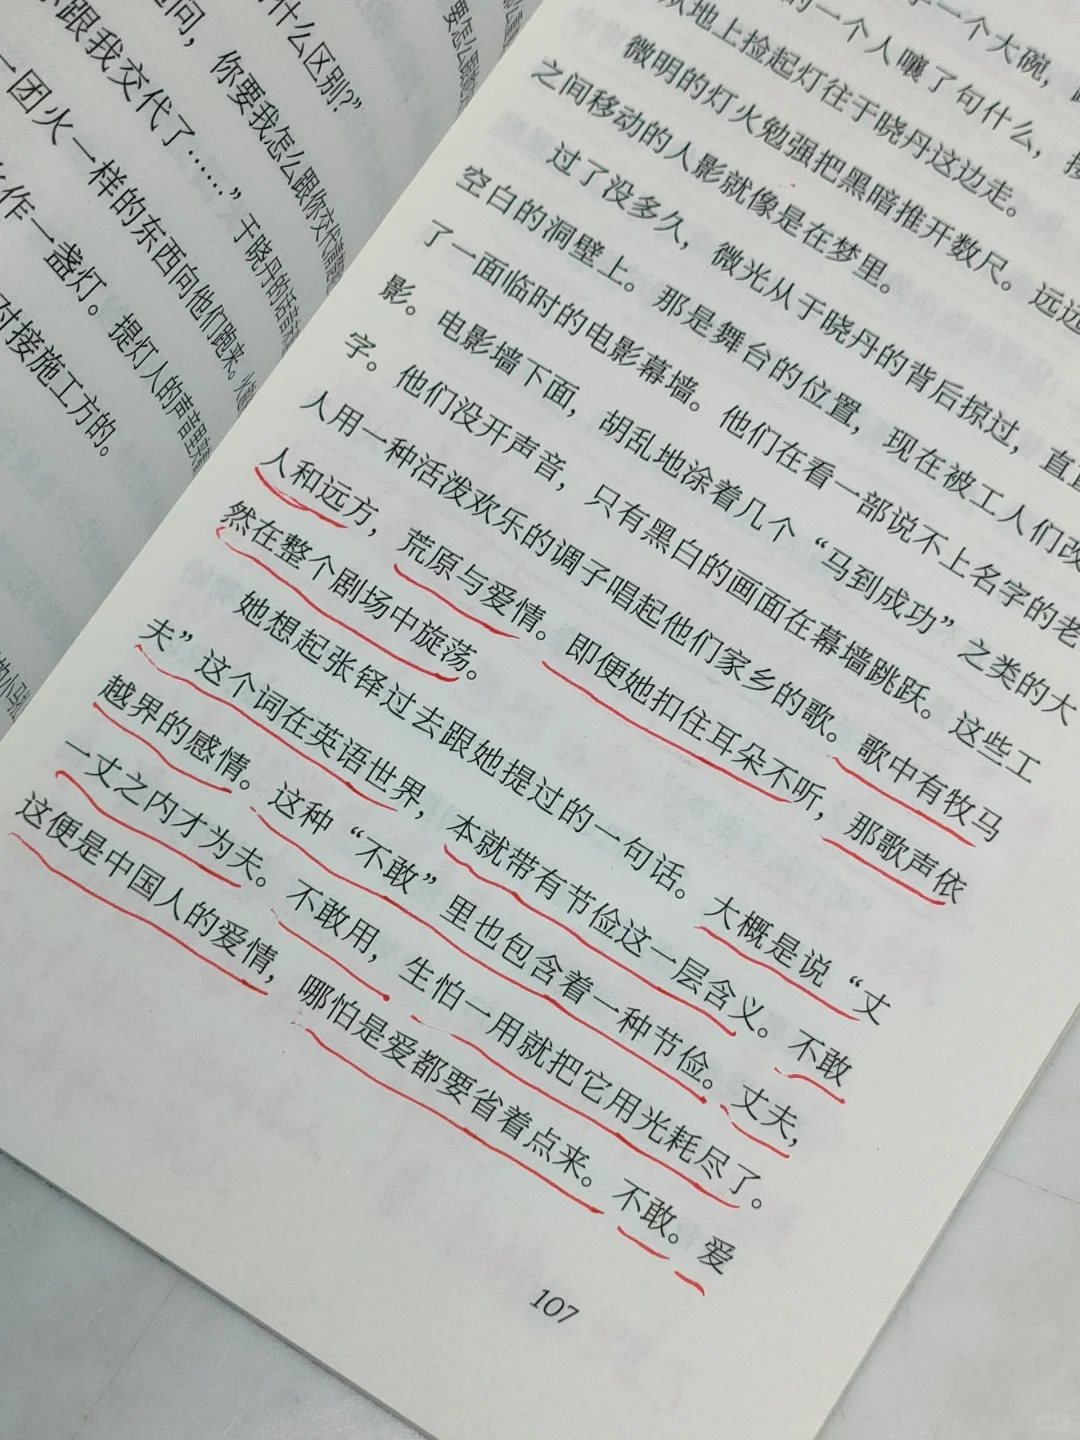 什么区别？”
问，你要我怎么跟你交代
跟我交代了……”于晓丹的话音
一团火一样的东西向他们跑来。
作一盏灯。提灯人的声音
对接施工方的。
一个大碗，
的一个人嚷了句什么，接
从地上捡起灯往于晓丹这边走。
微明的灯火勉强把黑暗推开数尺。远远
之间移动的人影就像是在梦里。
过了没多久，微光从于晓丹的背后掠过，直
空白的洞壁上。那是舞台的位置，现在被工人们改
了一面临时的电影幕墙。他们在看一部说不上名字的老
影。电影墙下面，胡乱地涂着几个“马到成功”之类的大
字。他们没开声音，只有黑白的画面在幕墙跳跃。这些工
人用一种活泼欢乐的调子唱起他们家乡的歌。歌中有牧马
人和远方，荒原与爱情。即便她扣住耳朵不听，那歌声依
然在整个剧场中旋荡。
她想起张铎过去跟她提过的一句话。大概是说“丈
夫”这个词在英语世界，本就带有节俭这一层含义。不敢
越界的感情。这种“不敢”里也包含着一种节俭。丈夫，
一丈之内才为夫。不敢用，生怕一用就把它用光耗尽了。
这便是中国人的爱情，哪怕是爱都要省着点来。不敢。爱
107